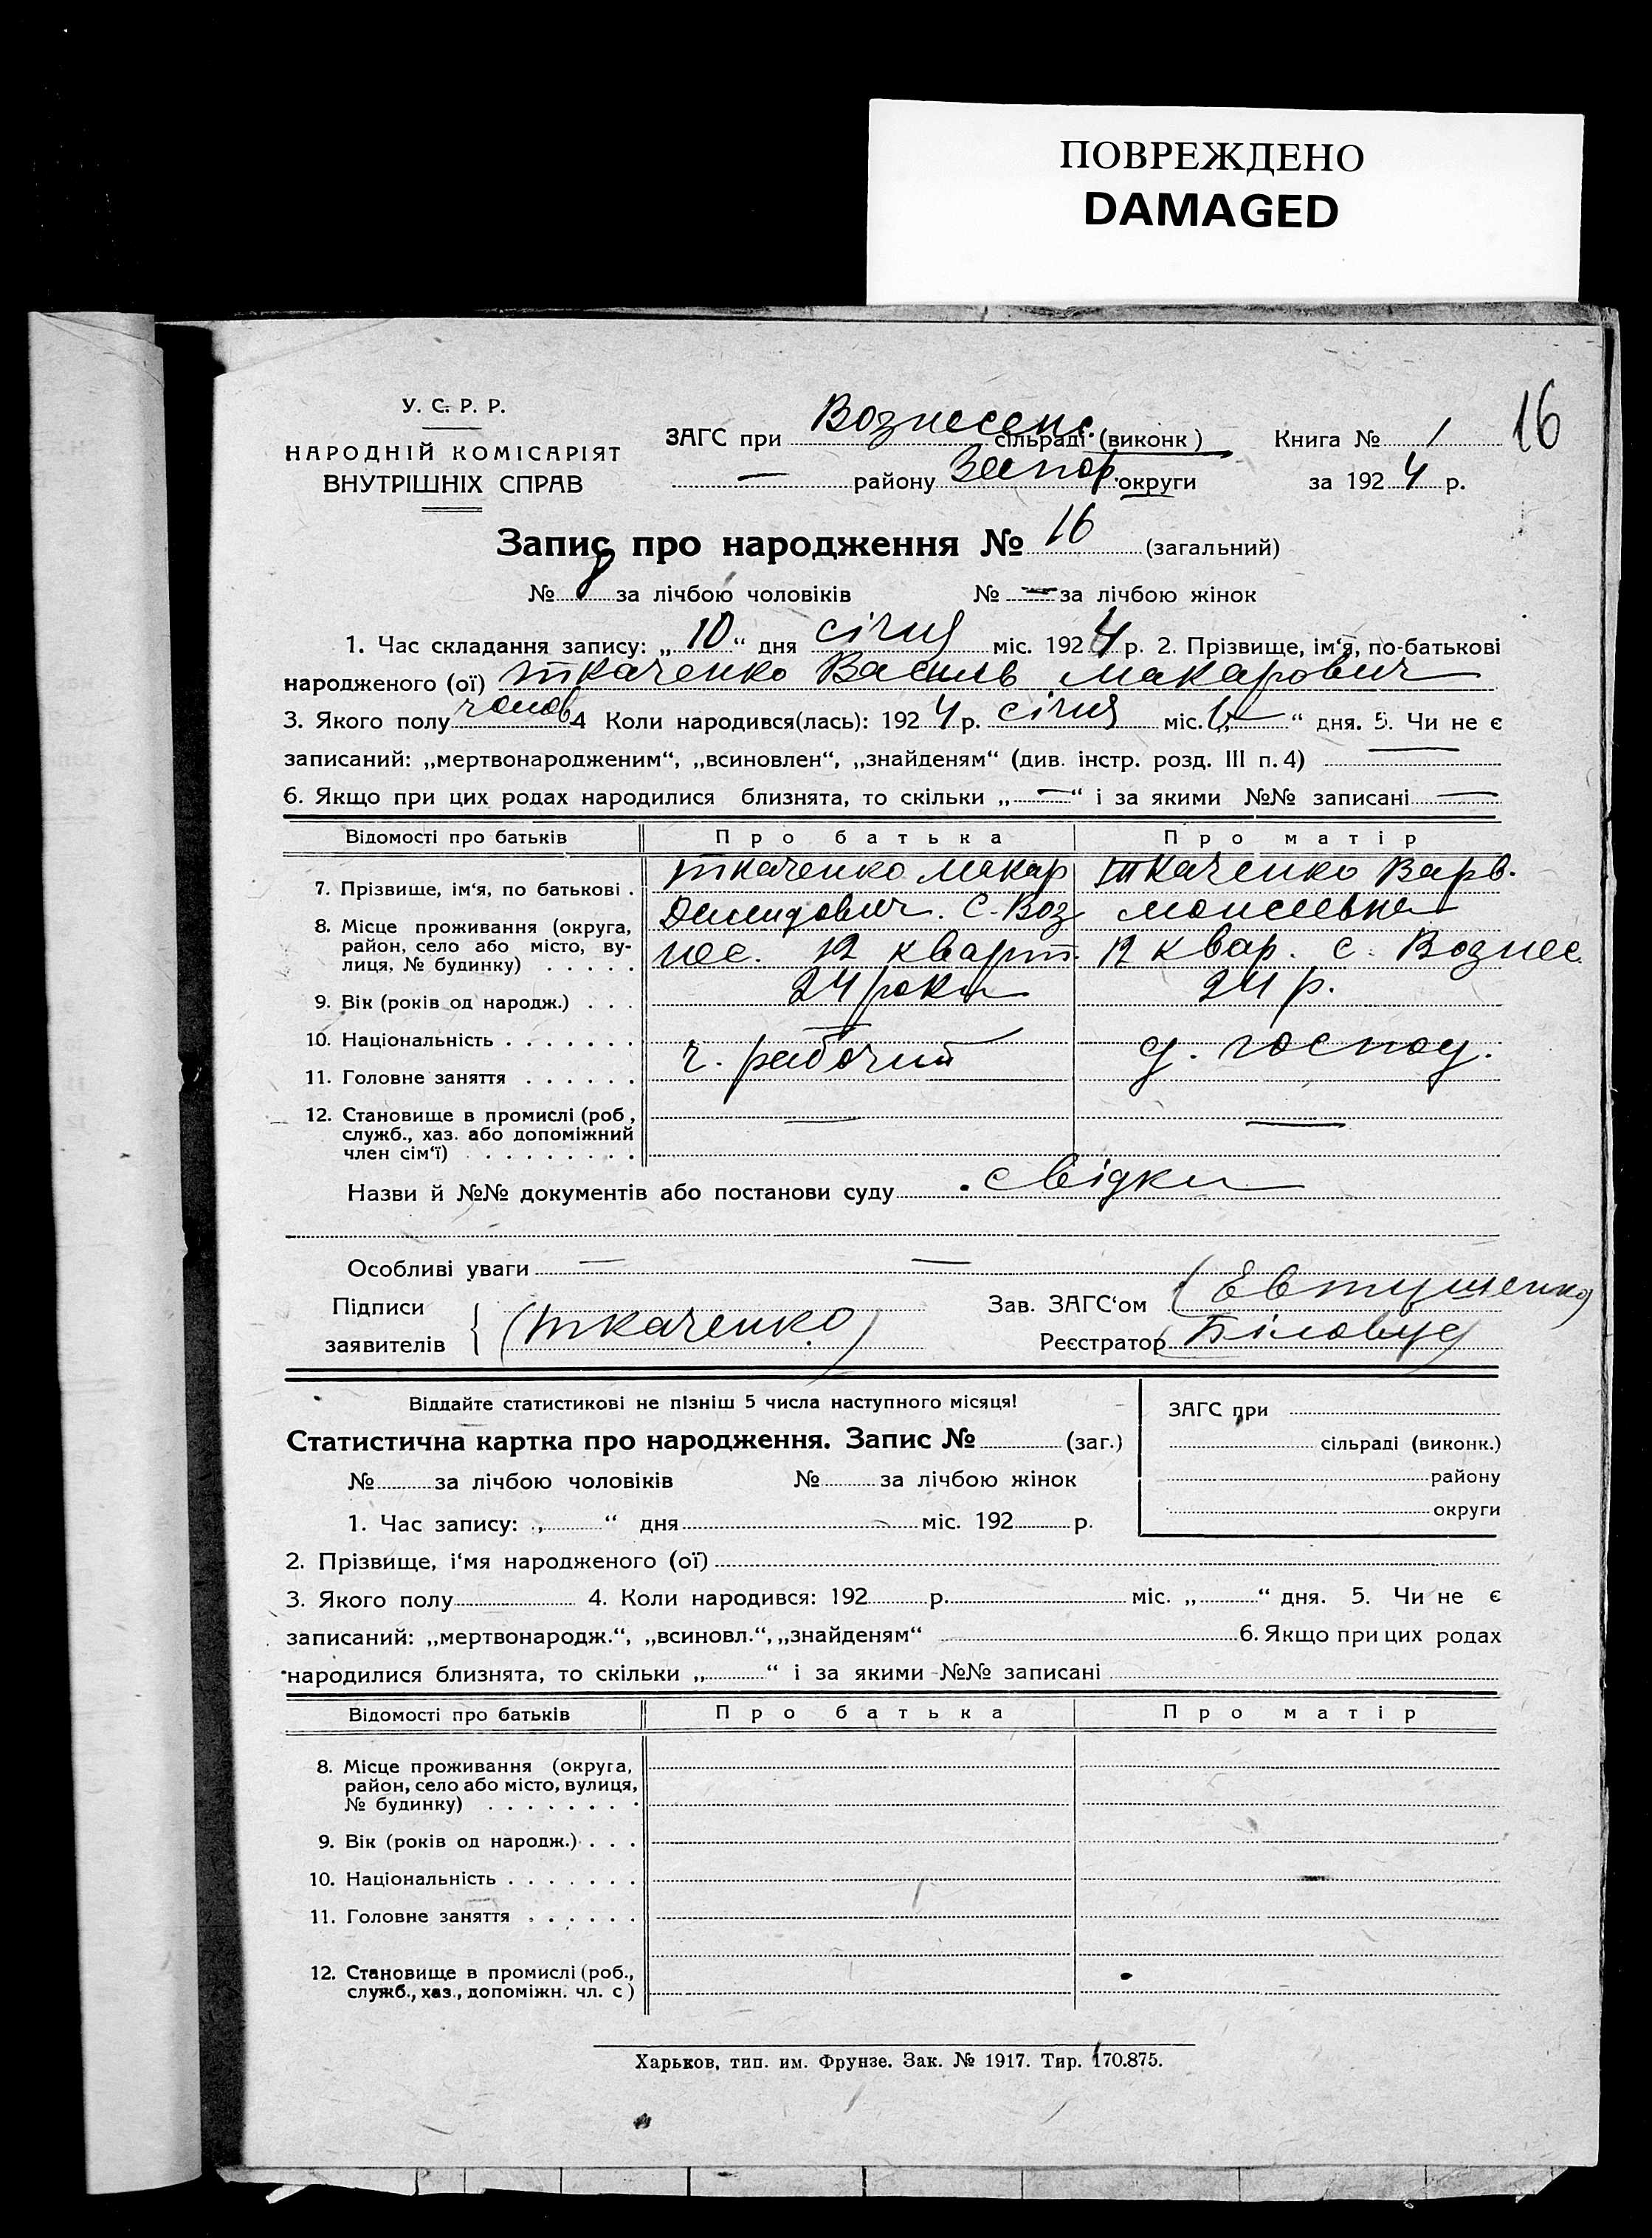 ПОВРЕЖДЕНО
DAMAGED
16
У. С. Р. Р.
НАРОДНІЙ КОМІСАРІЯТ
ВНУТРІШНІХ СПРАВ
ЗАГС при Вознесенс. сільраді (виконк)
— району Запор. округи
Книга № 1
за 1924 р.
Запис про народження № 16 (загальний)
№ 8 за лічбою чоловіків № — за лічбою жінок
1. Час складання запису: „10“ дня січня міс. 1924 р. 2. Прізвище, ім‘я, по-батькові
народженого (ої) Ткаченко Василь Макарович
3. Якого полу чолов 4 Коли народився(лась): 1924 р. січня міс. „ “ дня. 5. Чи не є
записаний: „мертвонародженим“, „всиновлен“, „знайденям“ (див. інстр. розд. III п. 4) —
6. Якщо при цих родах народилися близнята, то скільки „—“ і за якими №№ записані —
Відомості про батьків Про батька Про матір
7. Прізвище, ім‘я, по батькові . Ткаченко Макар Ткаченко Варв.
8. Місце проживання (округа, Демидович. С. Воз Моисеевна
район, село або місто, ву-
лиця, № будинку) . . . . . нес. 12 кварт. 12 квар. с. Вознес.
9. Вік (років од народж.) . . . 24 роки 24 р.
10. Національність . . . . . . .
11. Головне заняття . . . . . . ч. рабочий д. господ.
12. Становище в промислі (роб., — —
служб., хаз. або допоміжний
член сім‘ї) . . . . . . . . .
Назви й №№ документів або постанови суду свідки
Особливі уваги — —
Підписи
заявителів (Ткаченко)
Зав. ЗАГС‘ом (Евтушенко)
Реєстратор (Біловус)
Віддайте статистикові не пізніш 5 числа наступного місяця!
Статистична картка про народження. Запис № (заг.)
№ за лічбою чоловіків № за лічбою жінок
1. Час запису: „ “ дня міс. 192 р.
ЗАГС при
сільраді (виконк.)
району
округи
2. Прізвище, і‘мя народженого (ої)
3. Якого полу 4. Коли народився: 192 р. міс. „ “ дня. 5. Чи не є
записаний: „мертвонародж.“, „всиновл.“, „знайденям“ 6. Якщо при цих родах
народилися близнята, то скільки „ “ і за якими №№ записані
Відомості про батьків Про батька Про матір
8. Місце проживання (округа,
район, село або місто, вулиця,
№ будинку) . . . . . . . .
9. Вік (років од народж.) . . .
10. Національність . . . . . . .
11. Головне заняття . . . . . .
12. Становище в промислі (роб.,
служб., хаз., допоміжн. чл. с)
Харьков, тип. им. Фрунзе. Зак. № 1917. Тир. 170.875.